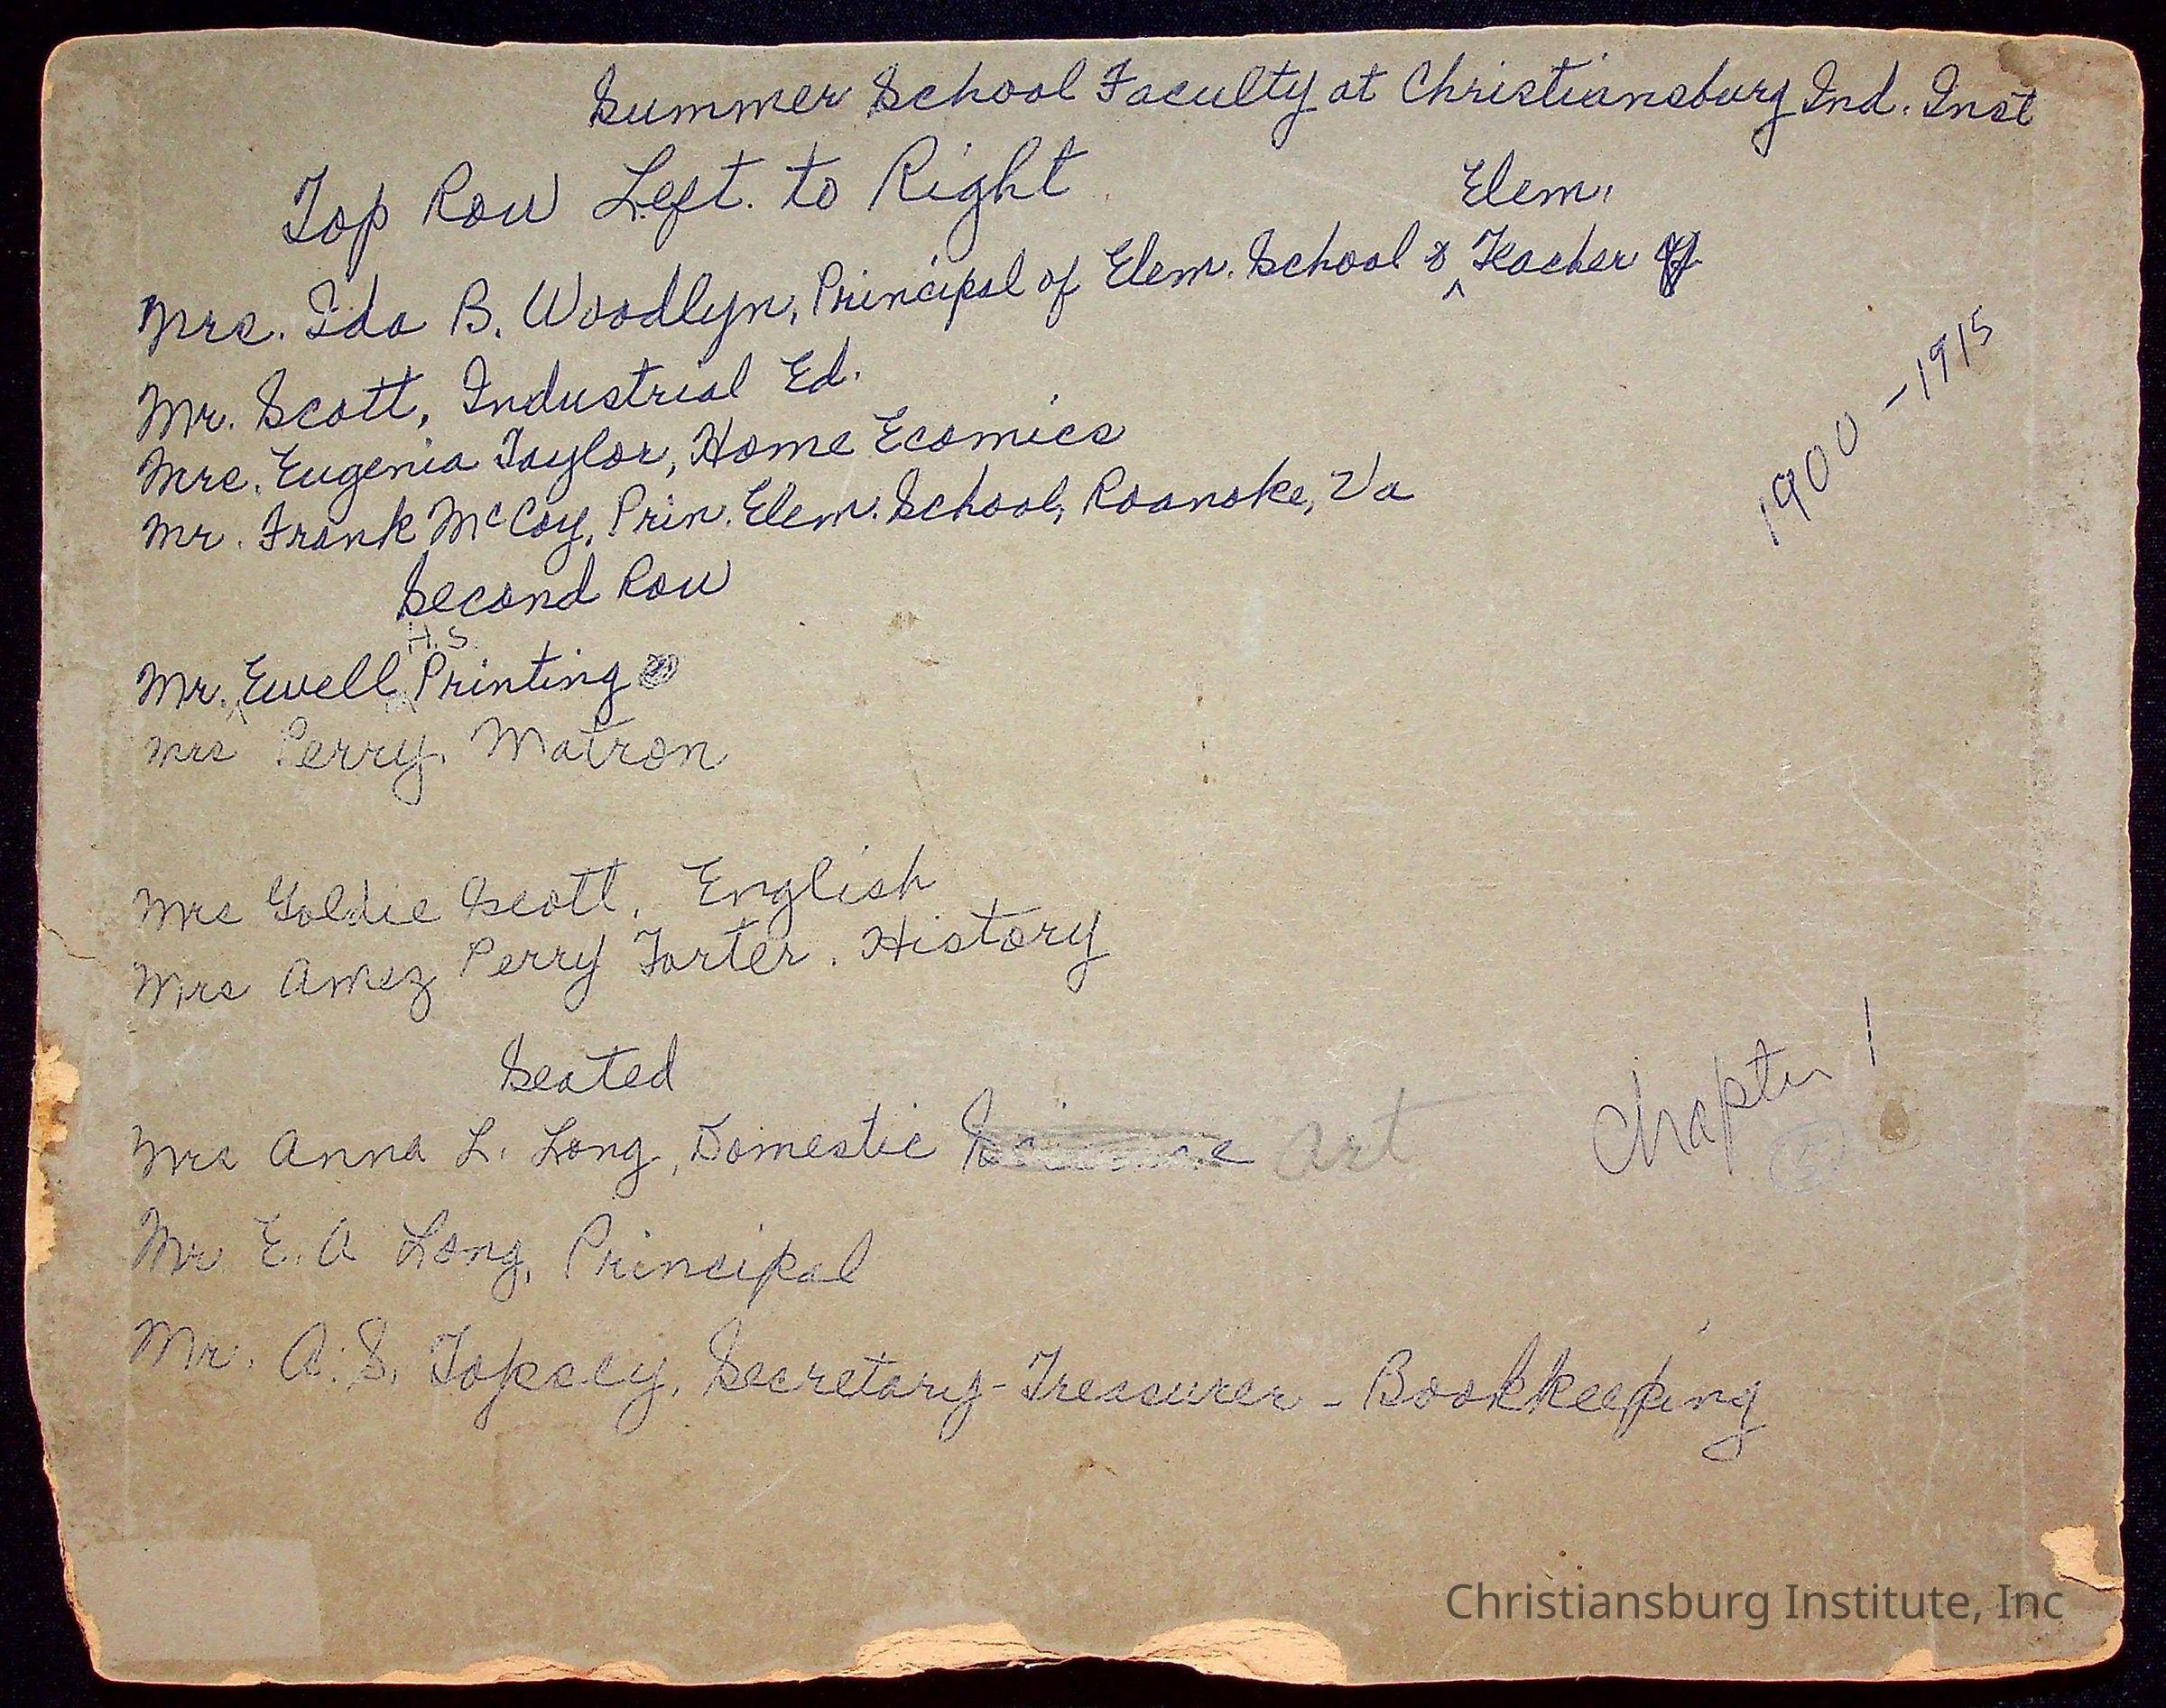 Summer School Faculty at Christiansburg Ind. Inst
Top Row Left. to Right
Elem.
Mrs. Ida B. Woodlyn, Principal of Elem. School & Teacher
Mr. Scott, Industrial Ed.
Mrs. Eugenia Taylor, Home Ecomics
Mr. Frank McCoy, Prin. Elem. School, Roanoke, Va
1900 - 1915
Second Row
H.S.
Mr. Ewell, Printing
Mrs Perry, Matron
Mrs Goldie Scott, English
Mrs Amez Perry Forter. History
Seated
Mrs Anna L. Long, Domestic Science Art
Chapter 1
Mr E. A Long, Principal
Mr. A. S. Topsey, Secretary-Treasurer - Bookkeeping
Christiansburg Institute, Inc